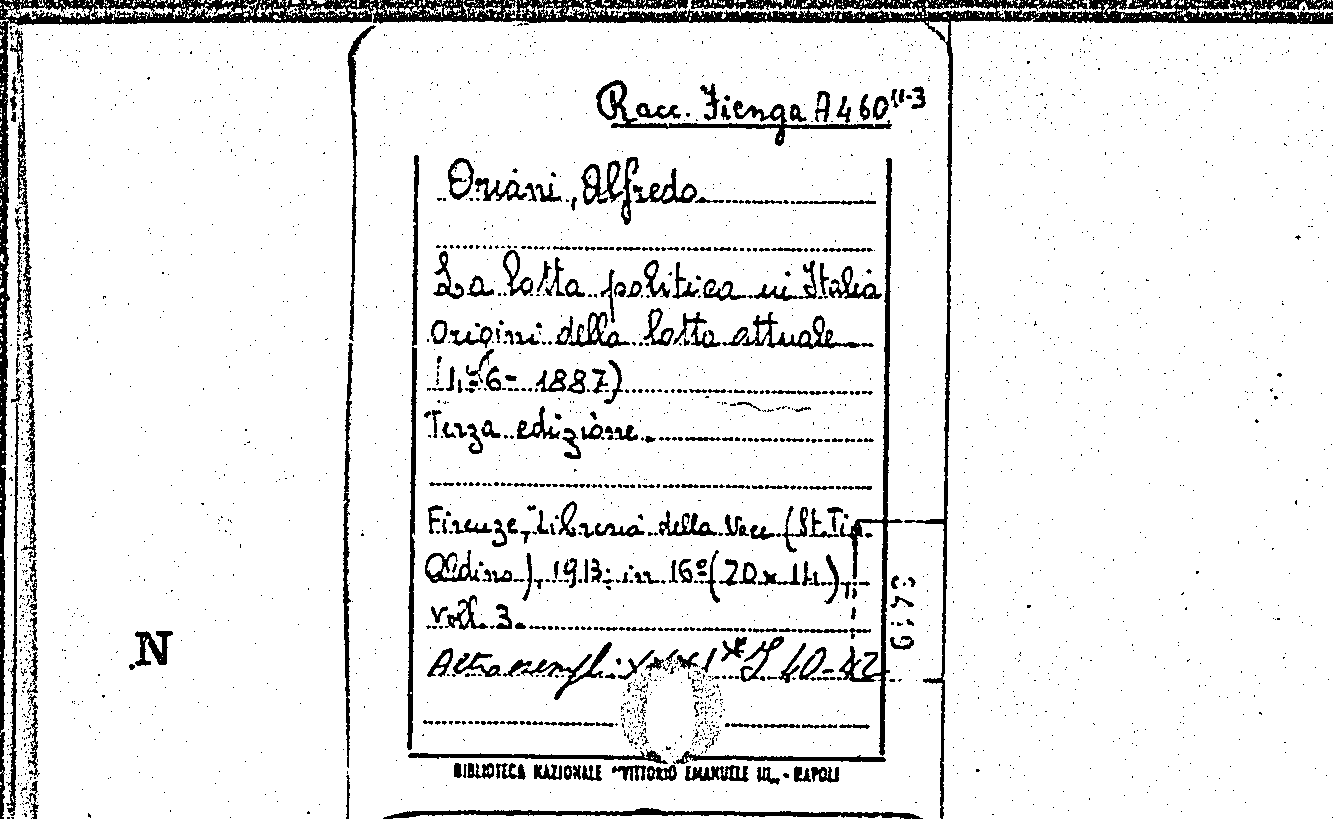 Racc. Fienga A 460 11-3
Oriani, Alfredo.
La lotta politica in Italia
Origini della lotta attuale
6 - 1887)
Terza edizione.
Firenze, Libreria della Voce (St. Tip.
Aldino), 1913; in 16º (20 x 14),
Voll. 3.
Altro esempl.: I 40-42
N
BIBLIOTECA NAZIONALE "VITTORIO EMANUELE III" - NAPOLI